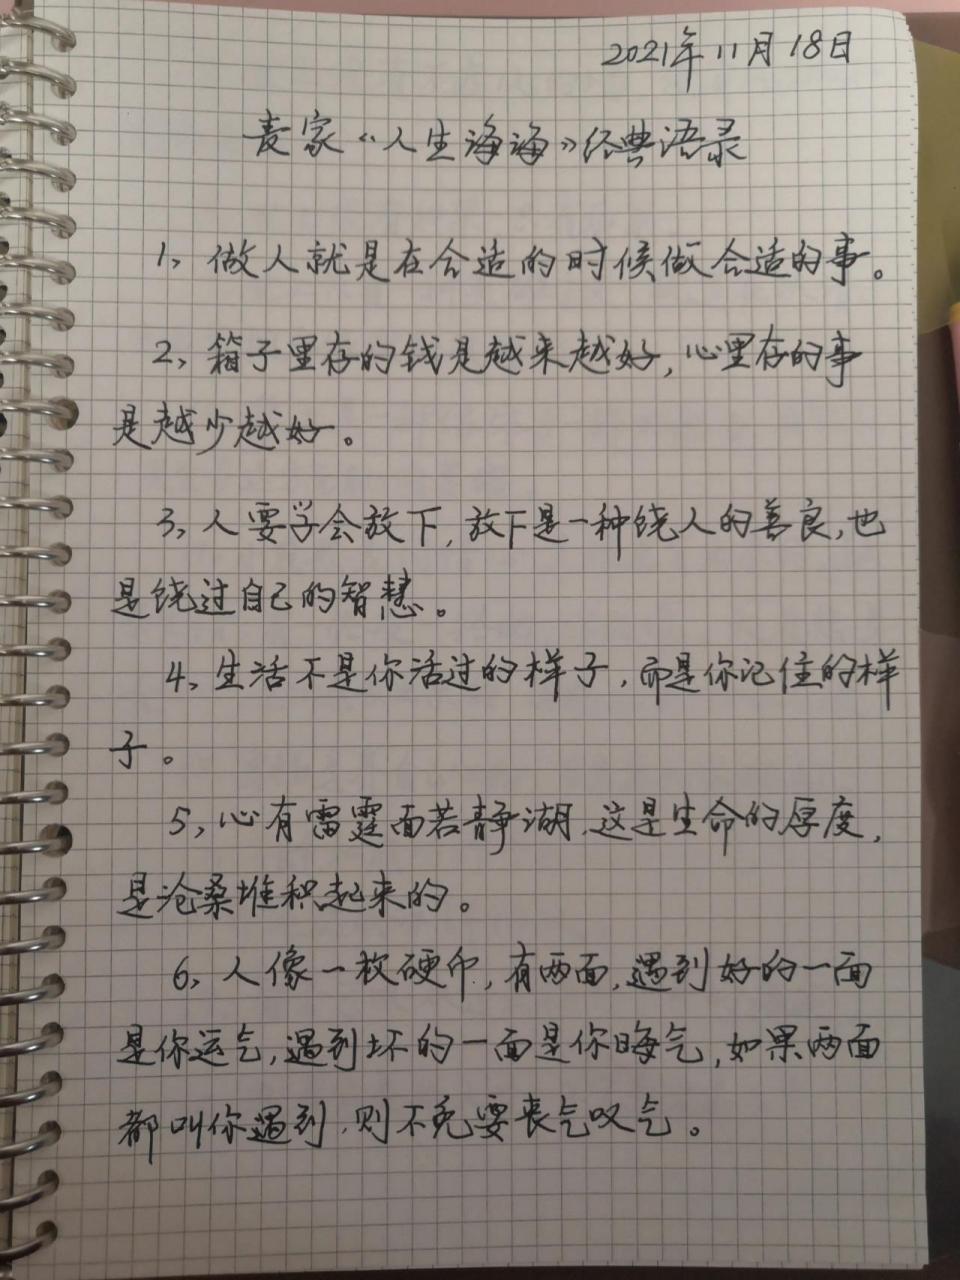 2021年11月18日
麦家《人生海海》经典语录
1、做人就是在合适的时候做合适的事。
2、箱子里存的钱是越来越好,心里存的事
是越少越好。
3、人要学会放下,放下是一种饶人的善良,也
是饶过自己的智慧。
4、生活不是你活过的样子,而是你记住的样
子。
5、心有雷霆面若静湖,这是生命的厚度,
是沧桑堆积起来的。
6、人像一枚硬币,有两面,遇到好的一面
是你运气,遇到坏的一面是你晦气,如果两面
都叫你遇到,则不免要丧气叹气。